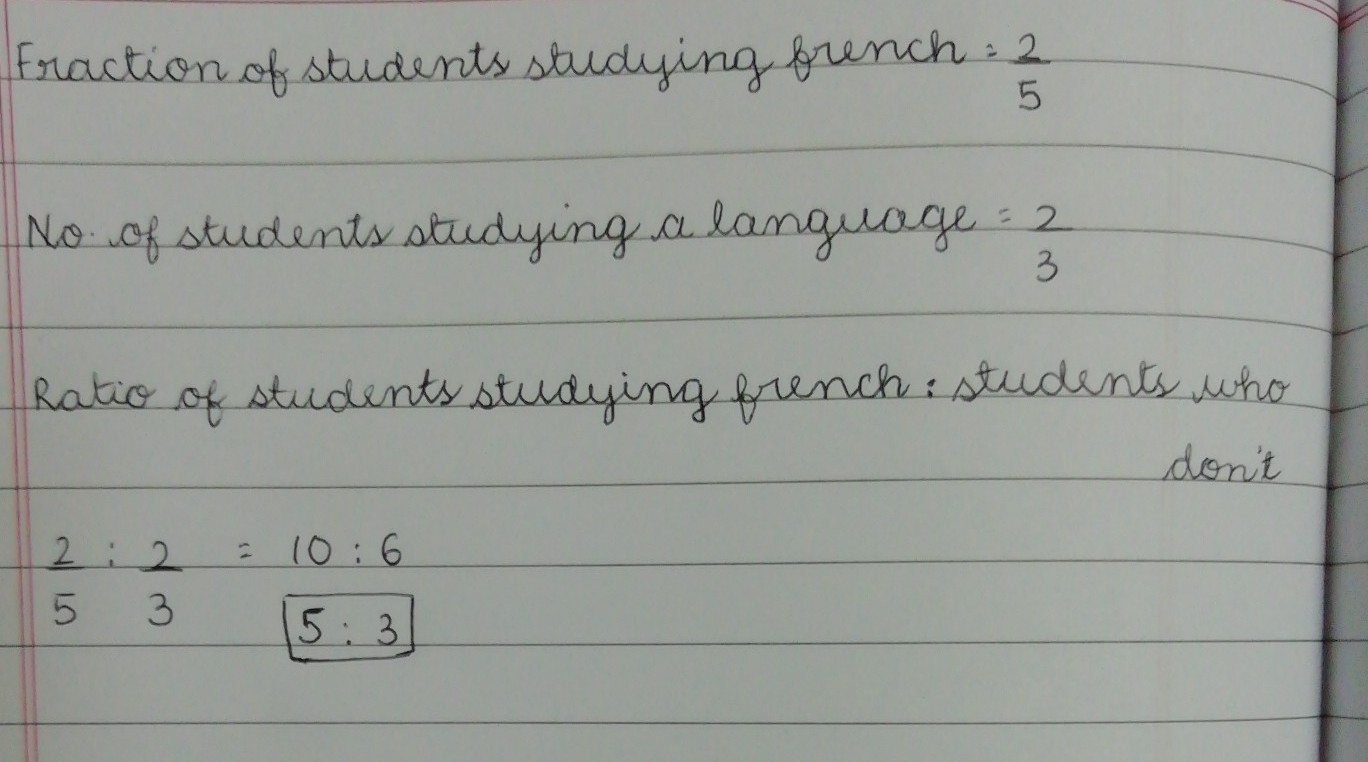 Fraction of students studying french = 2/5
No. of students studying a language = 2/3
Ratio of students studying french : students who
don't
2/5 : 2/3 = 10 : 6
5 : 3